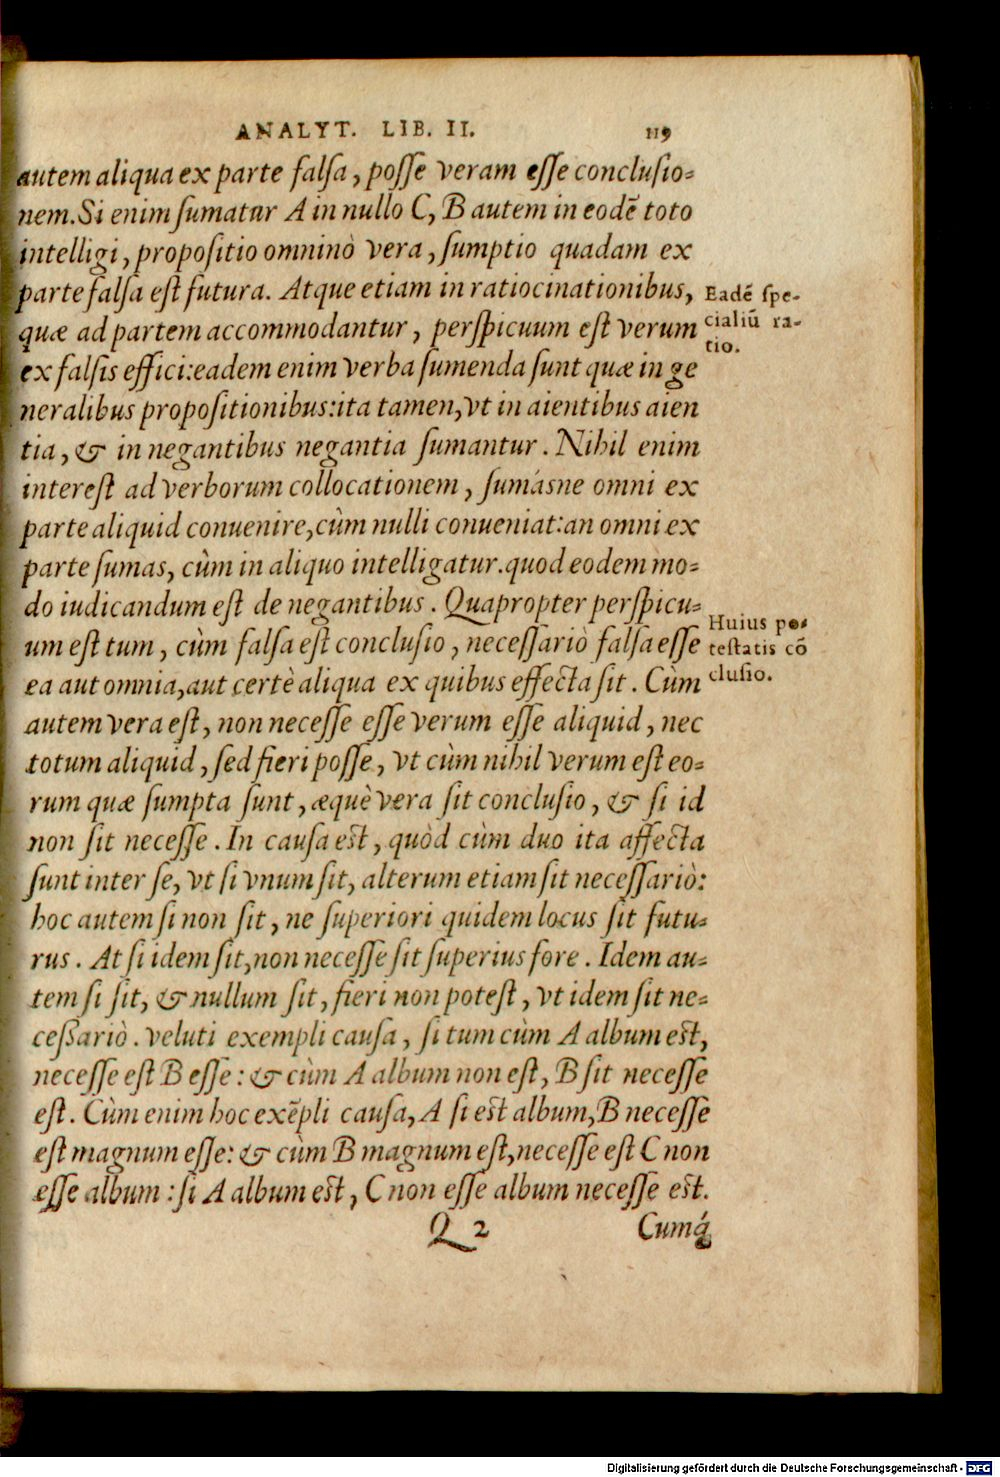 ANALYT. LIB. II. 119
autem aliqua ex parte falsa, posse veram esse conclusio-
nem. Si enim sumatur A in nullo C, B autem in eodē toto
intelligi, propositio omninò vera, sumptio quadam ex
parte falsa est futura. Atque etiam in ratiocinationibus,
quæ ad partem accommodantur, perspicuum est verum
ex falsis effici: eadem enim verba sumenda sunt quæ in ge
neralibus propositionibus: ita tamen, vt in aientibus aien
tia, & in negantibus negantia sumantur. Nihil enim
interest ad verborum collocationem, sumásne omni ex
parte aliquid conuenire, cùm nulli conueniat: an omni ex
parte sumas, cùm in aliquo intelligatur. quod eodem mo-
do iudicandum est de negantibus. Quapropter perspicu-
um est tum, cùm falsa est conclusio, necessariò falsa esse
ea aut omnia, aut certè aliqua ex quibus effecta sit. Cùm
autem vera est, non necesse esse verum esse aliquid, nec
totum aliquid, sed fieri posse, vt cùm nihil verum est eo-
rum quæ sumpta sunt, æquè vera sit conclusio, & si id
non sit necesse. In causa est, quòd cùm duo ita affecta
sunt inter se, vt si vnum sit, alterum etiam sit necessariò:
hoc autem si non sit, ne superiori quidem locus sit futu-
rus. At si idem sit, non necesse sit superius fore. Idem au-
tem si sit, & nullum sit, fieri non potest, vt idem sit ne-
cessariò. veluti exempli causa, si tum cùm A album est,
necesse est B esse: & cùm A album non est, B sit necesse
est. Cùm enim hoc exēpli causa, A si est album, B necesse
est magnum esse: & cùm B magnum est, necesse est C non
esse album: si A album est, C non esse album necesse est.
Q 2 Cumq́
Eadē spe-
cialiū ra-
tio.
Huius po-
testatis cō
clusio.
Digitalisierung gefördert durch die Deutsche Forschungsgemeinschaft - DFG